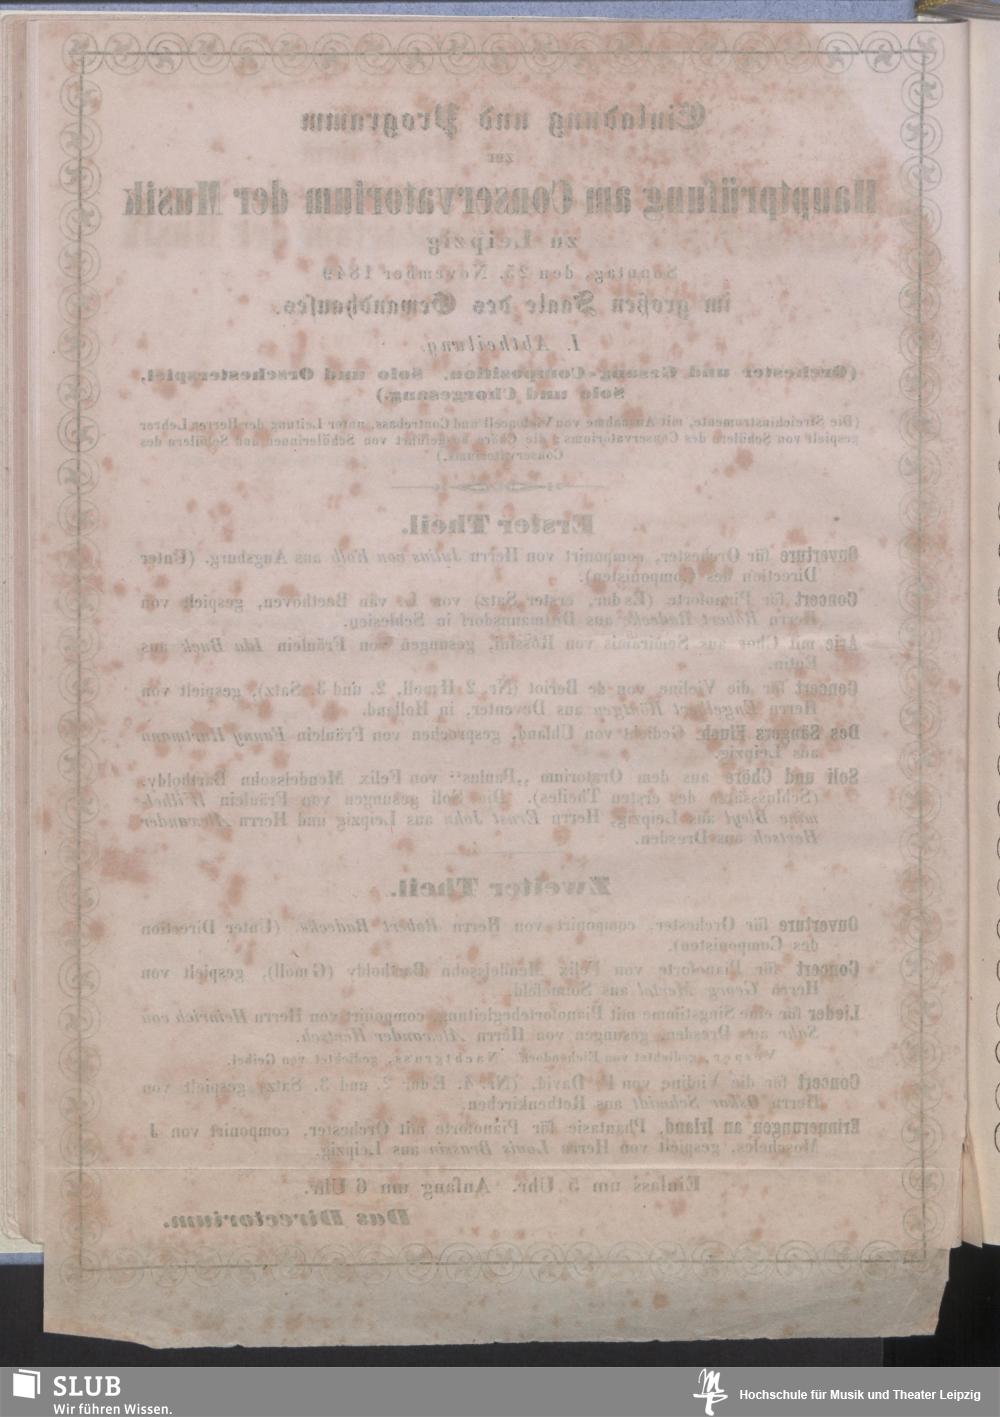 Einladung und Programm
zur
Hauptprüfung am Conservatorium der Musik
zu Leipzig
Sonntag, den 25. November 1849
im großen Saale des Gewandhauses.
I. Abtheilung.
(Orchester und Gesang-Composition. Solo und Orchesterspiel.
Solo und Chorgesang.)
(Die Streichinstrumente, mit Ausnahme von Violoncell und Contrabass, unter Leitung der Herren Lehrer
gespielt von Schülern des Conservatoriums; die Chöre ausgeführt von Schülerinnen und Schülern des
Conservatoriums.)
Erster Theil.
Ouverture für Orchester, componirt von Herrn Julius von Kolb aus Augsburg. (Unter
Direction des Componisten).
Concert für Pianoforte (Es dur, erster Satz) von L. van Beethoven, gespielt von
Herrn Robert Radecke aus Dittmannsdorf in Schlesien.
Arie mit Chor aus Semiramis von Rossini, gesungen von Fräulein Ida Buck aus
Eutin.
Concert für die Violine von de Beriot (Nr. 2 H moll, 2. und 3. Satz), gespielt von
Herrn Engelbert Röntgen aus Deventer, in Holland.
Des Sängers Fluch, Gedicht von Uhland, gesprochen von Fräulein Fanny Hartmann
aus Leipzig.
Soli und Chöre aus dem Oratorium „Paulus“ von Felix Mendelssohn Bartholdy.
(Schlusssätze des ersten Theiles). Die Soli gesungen von Fräulein Wilhel-
mine Bleyl aus Leipzig, Herrn Ernst John aus Leipzig und Herrn Alexander
Hertsch aus Dresden.
Zweiter Theil.
Ouverture für Orchester, componirt von Herrn Robert Radecke. (Unter Direction
des Componisten).
Concert für Pianoforte von Felix Mendelssohn Bartholdy (G moll), gespielt von
Herrn Georg aus Sonnefeld.
Lieder für eine Singstimme mit Pianofortebegleitung, componirt von Herrn Heinrich von
Sahr aus Dresden, gesungen von Herrn Alexander Hertsch.
Vesper, gedichtet von Eichendorff. Nachtgruss, gedichtet von Geibel.
Concert für die Violine von F. David, (Nr. 4. E dur 2. und 3. Satz) gespielt von
Herrn Oskar Schmidt aus Rothenkirchen.
Erinnerungen an Irland, Phantasie für Pianoforte mit Orchester, componirt von J
Moscheles, gespielt von Herrn Louis Brassin aus Leipzig.
Einlass um 5 Uhr. Anfang um 6 Uhr.
Das Directorium.
SLUB
Wir führen Wissen.
Hochschule für Musik und Theater Leipzig